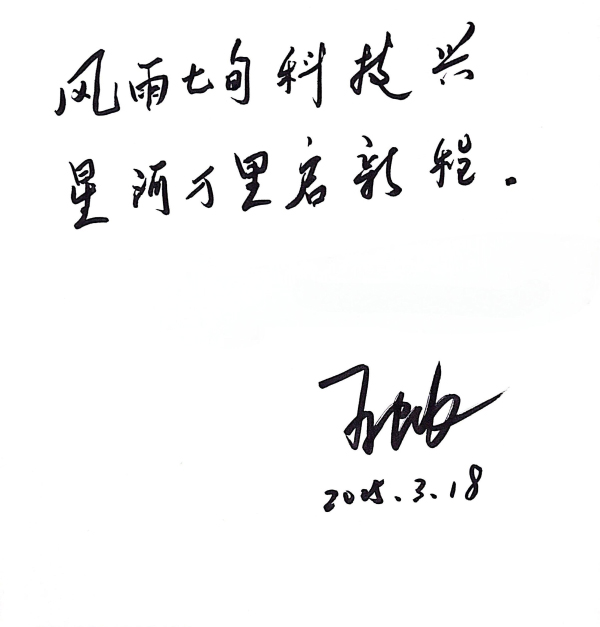 风雨七旬科技兴
星河万里启新程.
2025.3.18